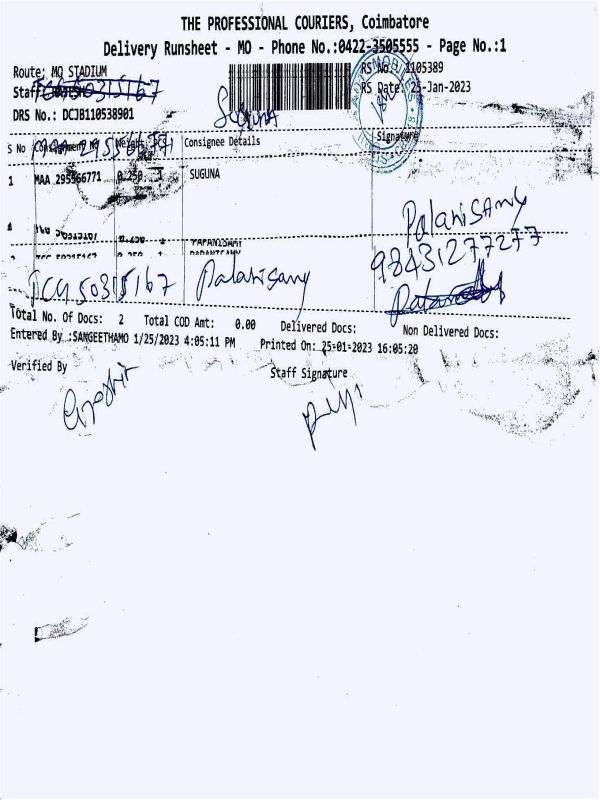 THE PROFESSIONAL COURIERS, Coimbatore
Delivery Runsheet - MO - Phone No.:0422-3505555 - Page No.:1
Route: MO STADIUM
RS No.: 1105389
Staff
RS Date: 25-Jan-2023
DRS No.: DCJB110538901
Suguna
S No Consignee Details Signature
MAA 295566771
1 MAA 295566771 0.250 1 SUGUNA
Palanisamy
0.250 1 PAPANISAMY
98431277277
PCG 50315167 Palanisamy
Total No. Of Docs: 2 Total COD Amt: 0.00 Delivered Docs: Non Delivered Docs:
Entered By :SANGEETHAMO 1/25/2023 4:05:11 PM Printed On: 25-01-2023 16:05:20
Verified By Staff Signature